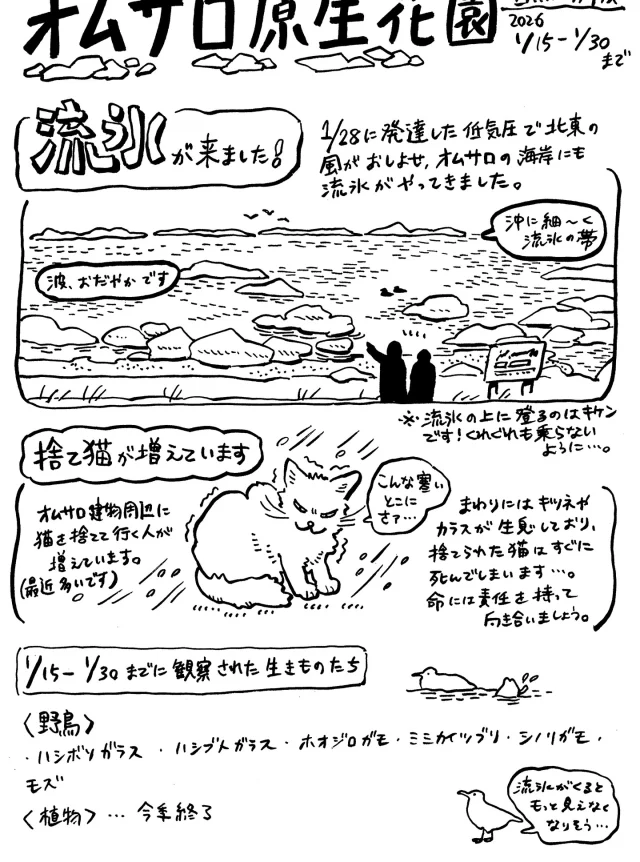 オムサロ原生花園
2026
1/15－1/30
まで
流氷が来ました!
1/28に発達した低気圧で北東の
風がおしよせ,オムサロの海岸にも
流氷がやってきました。
沖に細〜く
流氷の帯
波、おだやかです
※流氷の上に登るのはキケン
です!くれぐれも乗らない
ように…。
捨て猫が増えています
オムサロ建物周辺に
猫を捨てて行く人が
増えています。
(最近多いです)
こんな寒い
とこに
さァ…
まわりにはキツネや
カラスが生息しており、
捨てられた猫はすぐに
死んでしまいます…。
命には責任を持って
向き合いましょう。
1/15－1/30までに観察された生きものたち
〈野鳥〉
・ハシボソガラス・ハシブトガラス・ホオジロガモ・ミミカイツブリ・シノリガモ・
モズ
〈植物〉…今季終了
流氷がくると
もっと見えなく
なりそう…